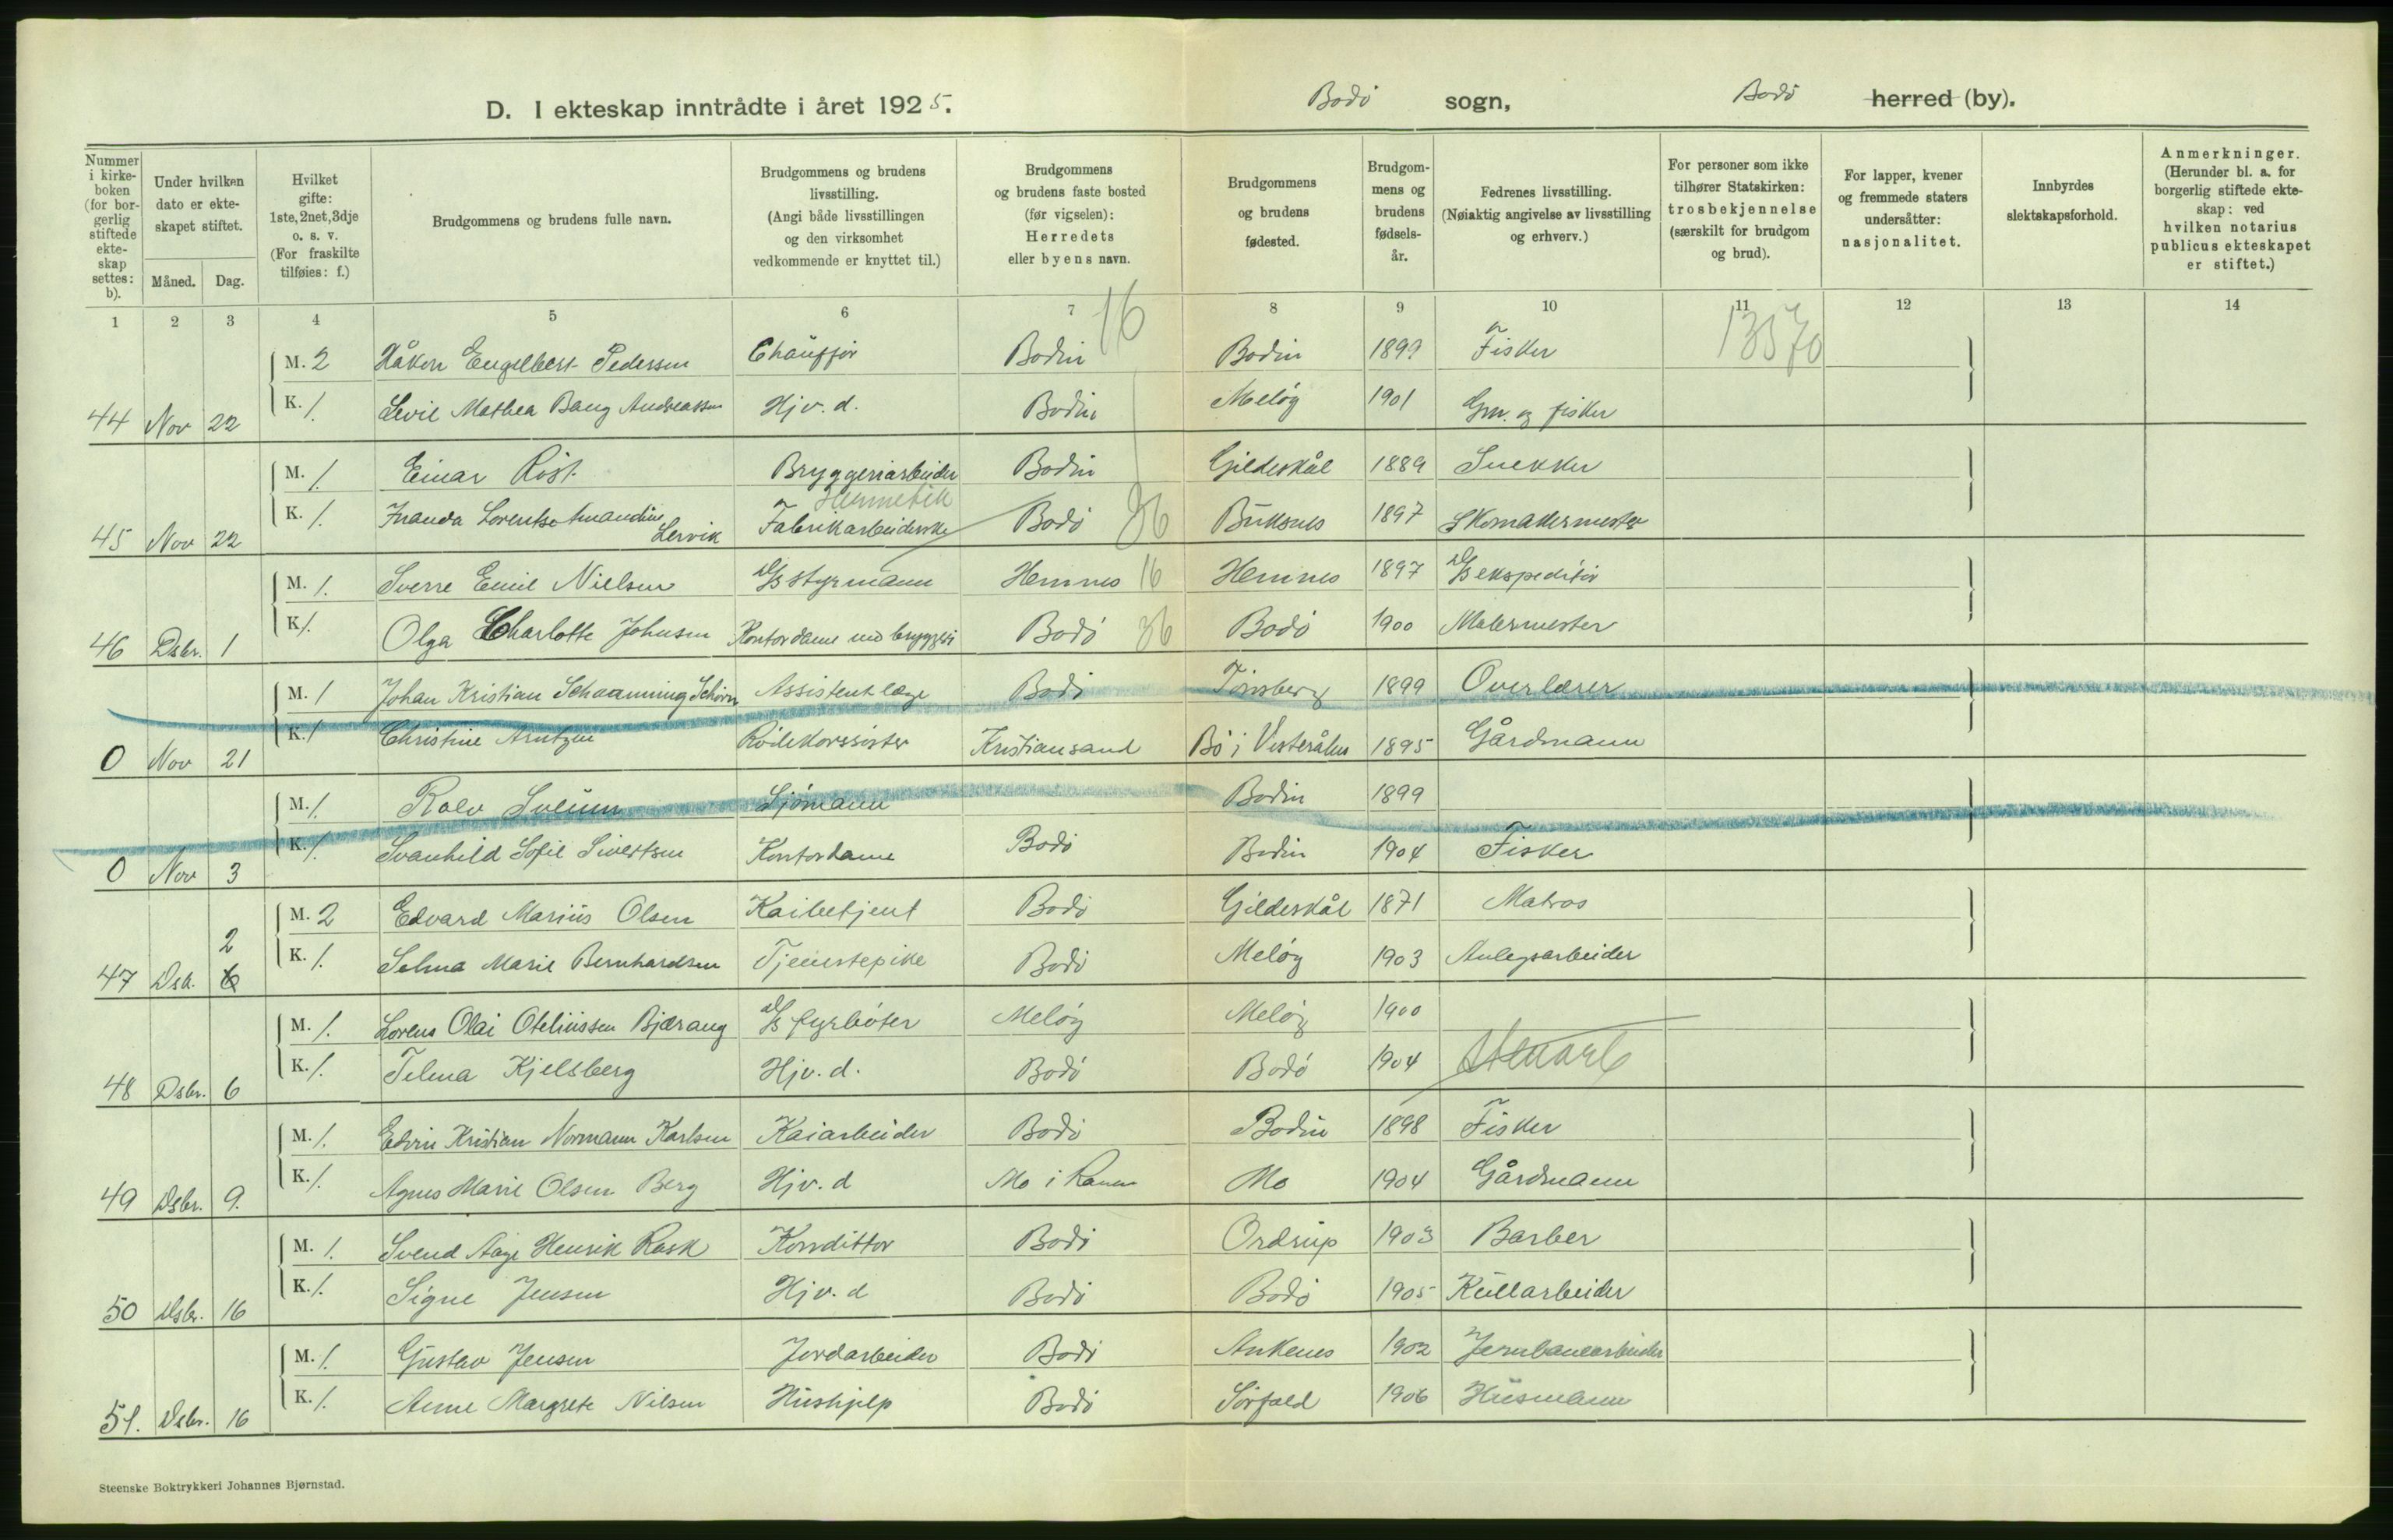 D. I ekteskap inntrådte i året 1925. Bodö sogn, Bodö herred (by).
Nummer i kirkeboken (for borgerlig stiftede ekteskap settes: b).
Under hvilken dato er ekteskapet stiftet.
Måned. Dag.
Hvilket gifte: 1ste, 2net, 3dje o. s. v. (For fraskilte tilføies: f.)
Brudgommens og brudens fulle navn.
Brudgommens og brudens livsstilling. (Angi både livsstillingen og den virksomhet vedkommende er knyttet til.)
Brudgommens og brudens faste bosted (før vigselen): Herredets eller byens navn.
Brudgommens og brudens fødested.
Brudgommens og brudens fødselsår.
Fedrenes livsstilling. (Nøiaktig angivelse av livsstilling og erhverv.)
For personer som ikke tilhører Statskirken: trosbekjennelse (særskilt for brudgom og brud).
For lapper, kvener og fremmede staters undersåtter: nasjonalitet.
Innbyrdes slektskapsforhold.
Anmerkninger. (Herunder bl. a. for borgerlig stiftede ekteskap: ved hvilken notarius publicus ekteskapet er stiftet.)
1 2 3 4 5 6 7 8 9 10 11 12 13 14
16 13570
M. 2 Håkon Engelbert Pedersen Chaufför Bodin Bodin 1899 Fisker
44 Nov 22 K. 1. Levie Mathea Bang Andreassen Hjv. d. Bodin Melöy 1901 Grn. og fisker
M. 1. Einar Röst. Bryggeriarbeider Bodin Gildeskål 1889 Snekker
Hermetik
45 Nov 22 K. 1. Lorentse Amandine Lervik Fabrikarbeiderske Bodö 36 Buksnes 1897 Skomakermester
M. 1. Sverre Emil Nielsen D/S styrmann Hemnes 16 Hemnes 1897 D/S ekspeditör
46 Dsbr. 1 K. 1. Olga Charlotte Johnsen Kontordame ved bryggeri Bodö 36 Bodö 1900 Malermester
M. 1 Johan Kristian Schaanning Assistentlæge Bodö Tönsberg 1899 Overlærer
0 Nov 21 K. 1 Christine Arntzen Rödekorssöster Kristiansand Bö i Vesterålen 1895 Gårdmann
M. 1. Rolv Sjömann Bodin 1899
0 Nov 3 K. 1. Svanhild Sofie Sivertsen Kontordame Bodö Bodin 1904 Fisker
M. 2 Edvard Marius Olsen Kaibetjent Bodö Gildeskål 1871 Matros
2
47 Dsb. 6 K. 1. Selma Marie Bernhardsen Tjenestepike Bodö Melöy 1903 Anlegsarbeider
M. 1. Lorens Olai Oteliussen Bjærang D/S fyrböter Melöy Melöy 1900
48 Dsbr. 6 K. 1. Telma Kjelsberg Hjv. d. Bodö Bodö 1904
M. 1. Edvin Kristian Normann Karlsen Kaiarbeider Bodö Bodin 1898 Fisker
49 Dsbr. 9. K. 1. Agnes Marie Olsen Berg Hjv. d Mo i Ranen Mo 1904 Gårdmann
M. 1. Svend Aage Henrik Rask Konditor Bodö Ordrup 1903 Barber
50 Dsbr. 16 K. 1. Signe Jensen Hjv. d Bodö Bodö 1905 Kullarbeider
M. 1. Gustav Jensen Jordarbeider Bodö Ankenes 1902 Jernbanearbeider
51. Dsbr. 16 K. 1. Anne Margrete Nilsen Hushjelp Bodö Sörfold 1906 Husmann
Steenske Boktrykkeri Johannes Bjørnstad.